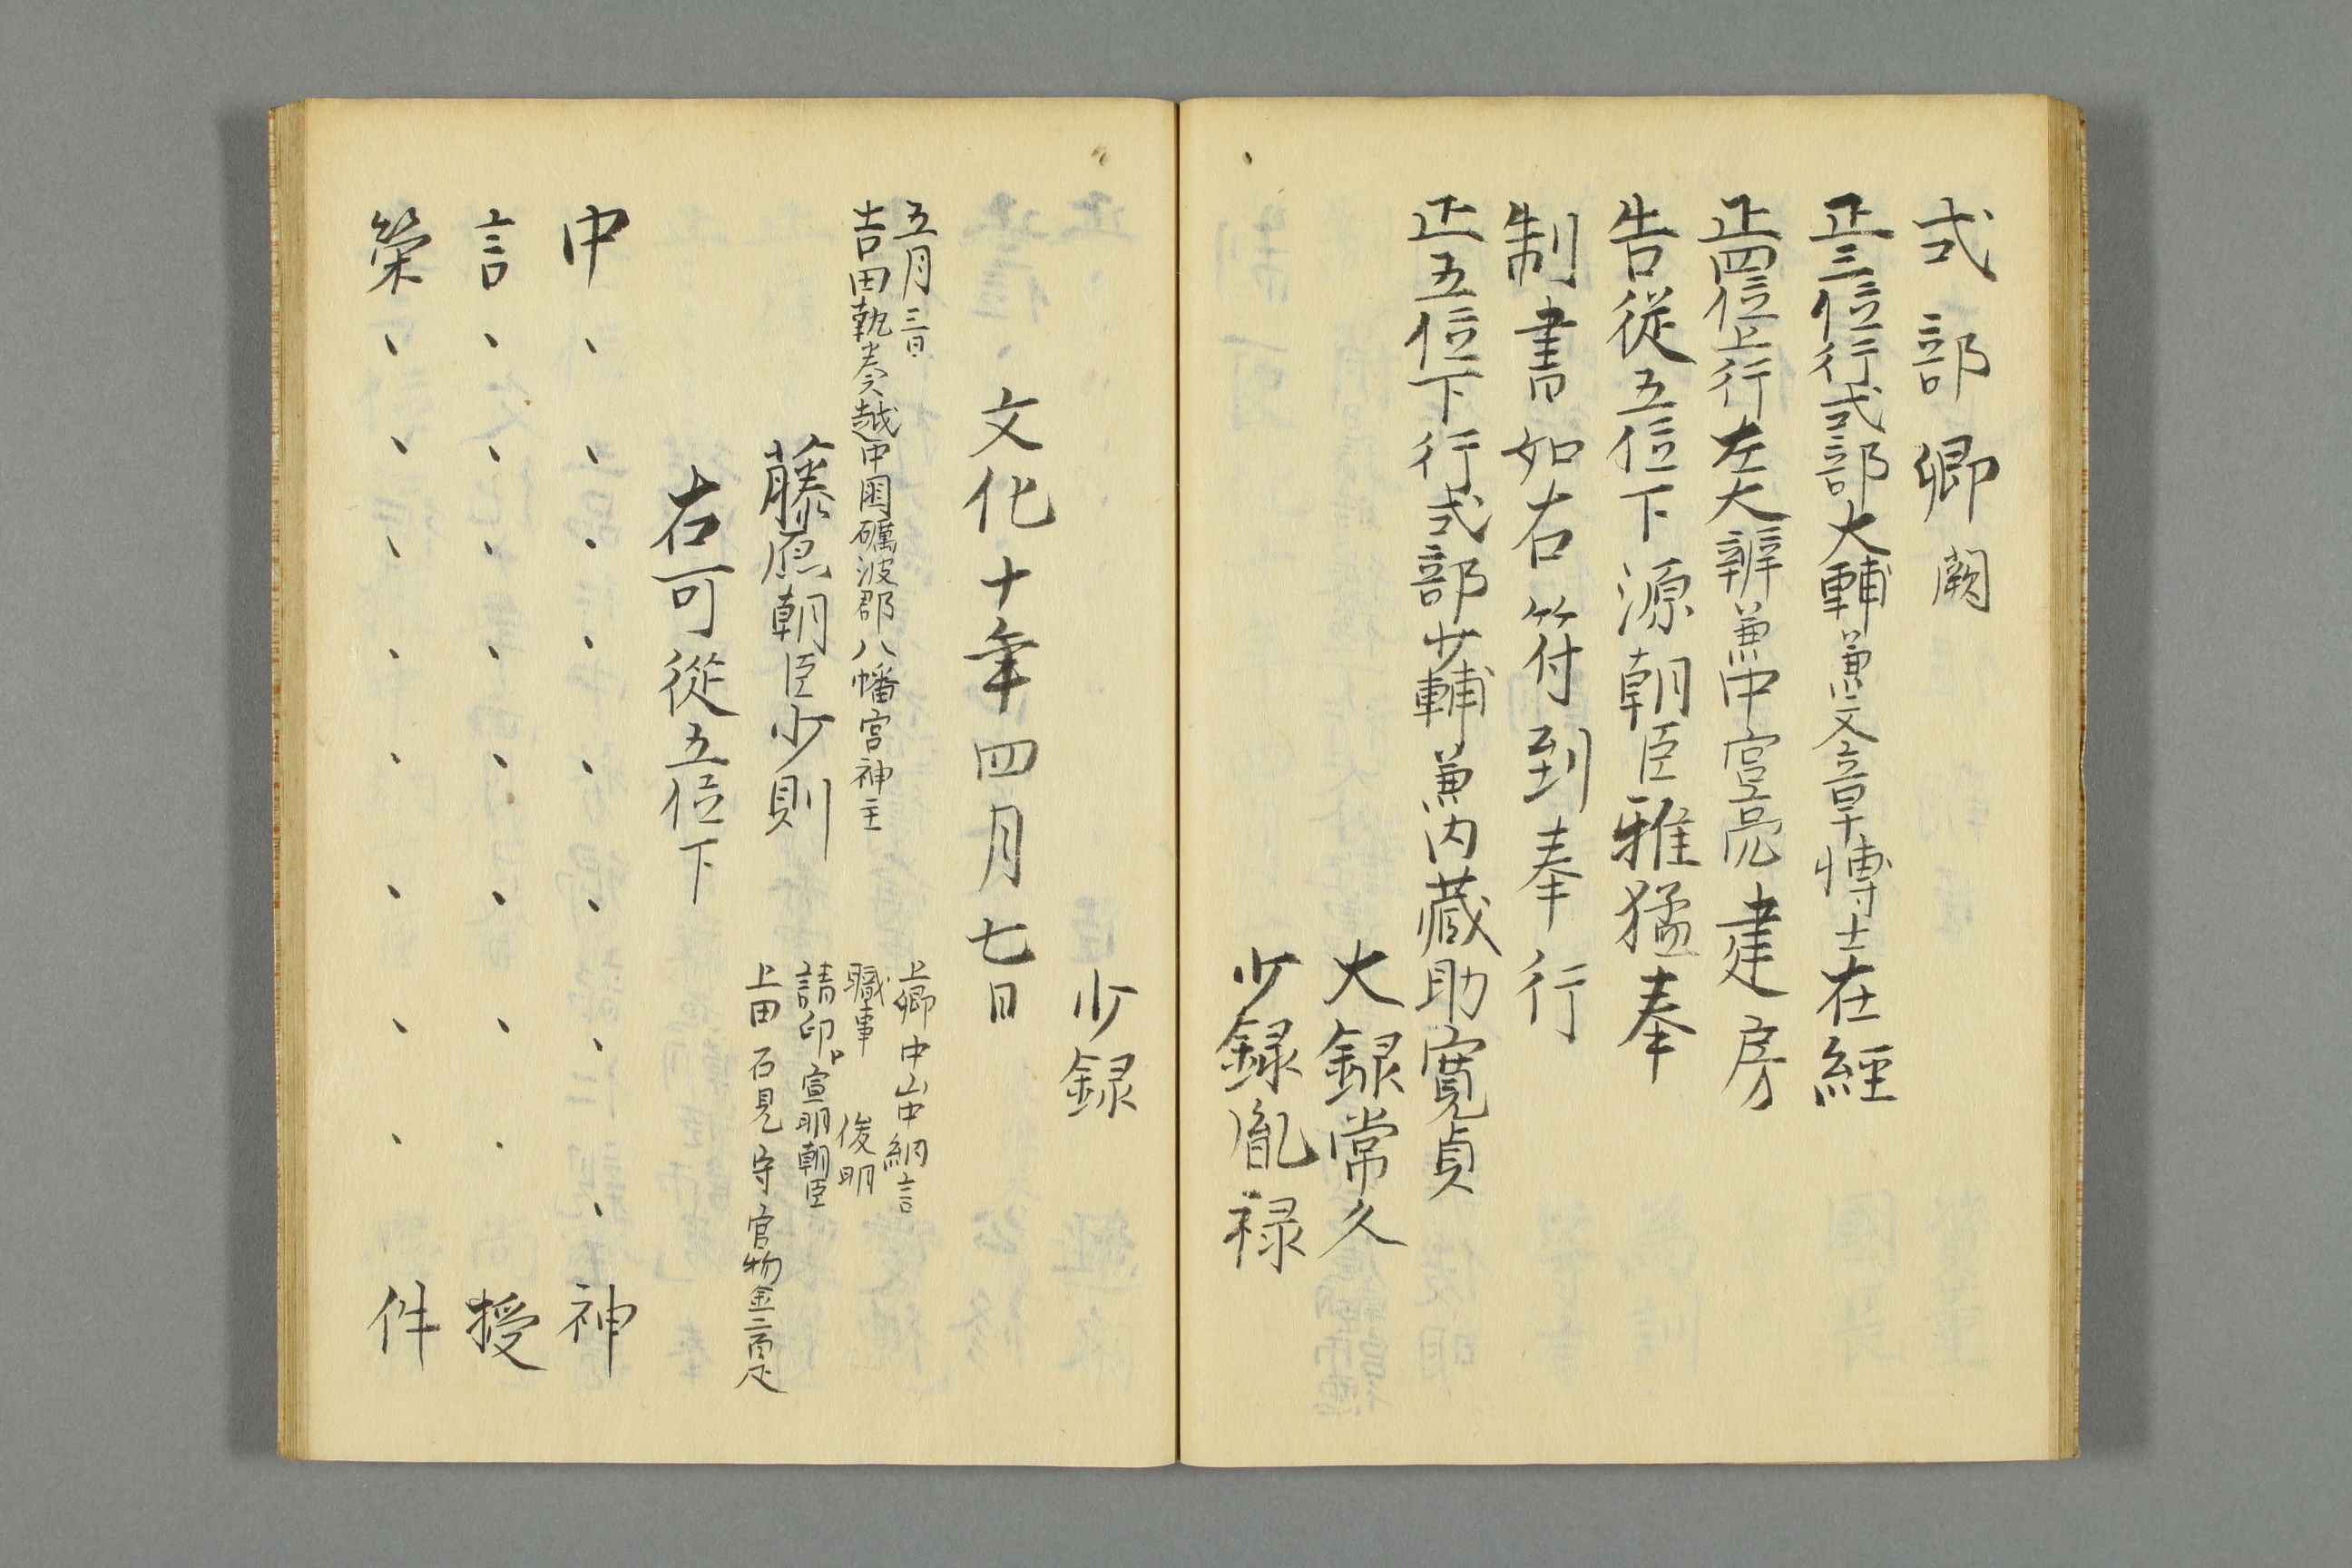 式部卿闕
正三位行式部大輔兼文章博士在経
正四位上行左大辨兼中宮亮建房
告従五位下源朝臣雅猛奉
制書如右符到奉行
正五位下行式部少輔兼内蔵助寛貞
大録常久
少録胤禄
少録
文化十年四月七日
五月三日
吉田執奏越中国礪波郡八幡宮神主
藤原朝臣少則
右可従五位下
上卿中山中納言
職事 俊明
請印 宣明朝臣
上田石見守官物金二百疋
中、、、、、、、、、神
言、、、、、、、、授
栄、、、、、、、、件